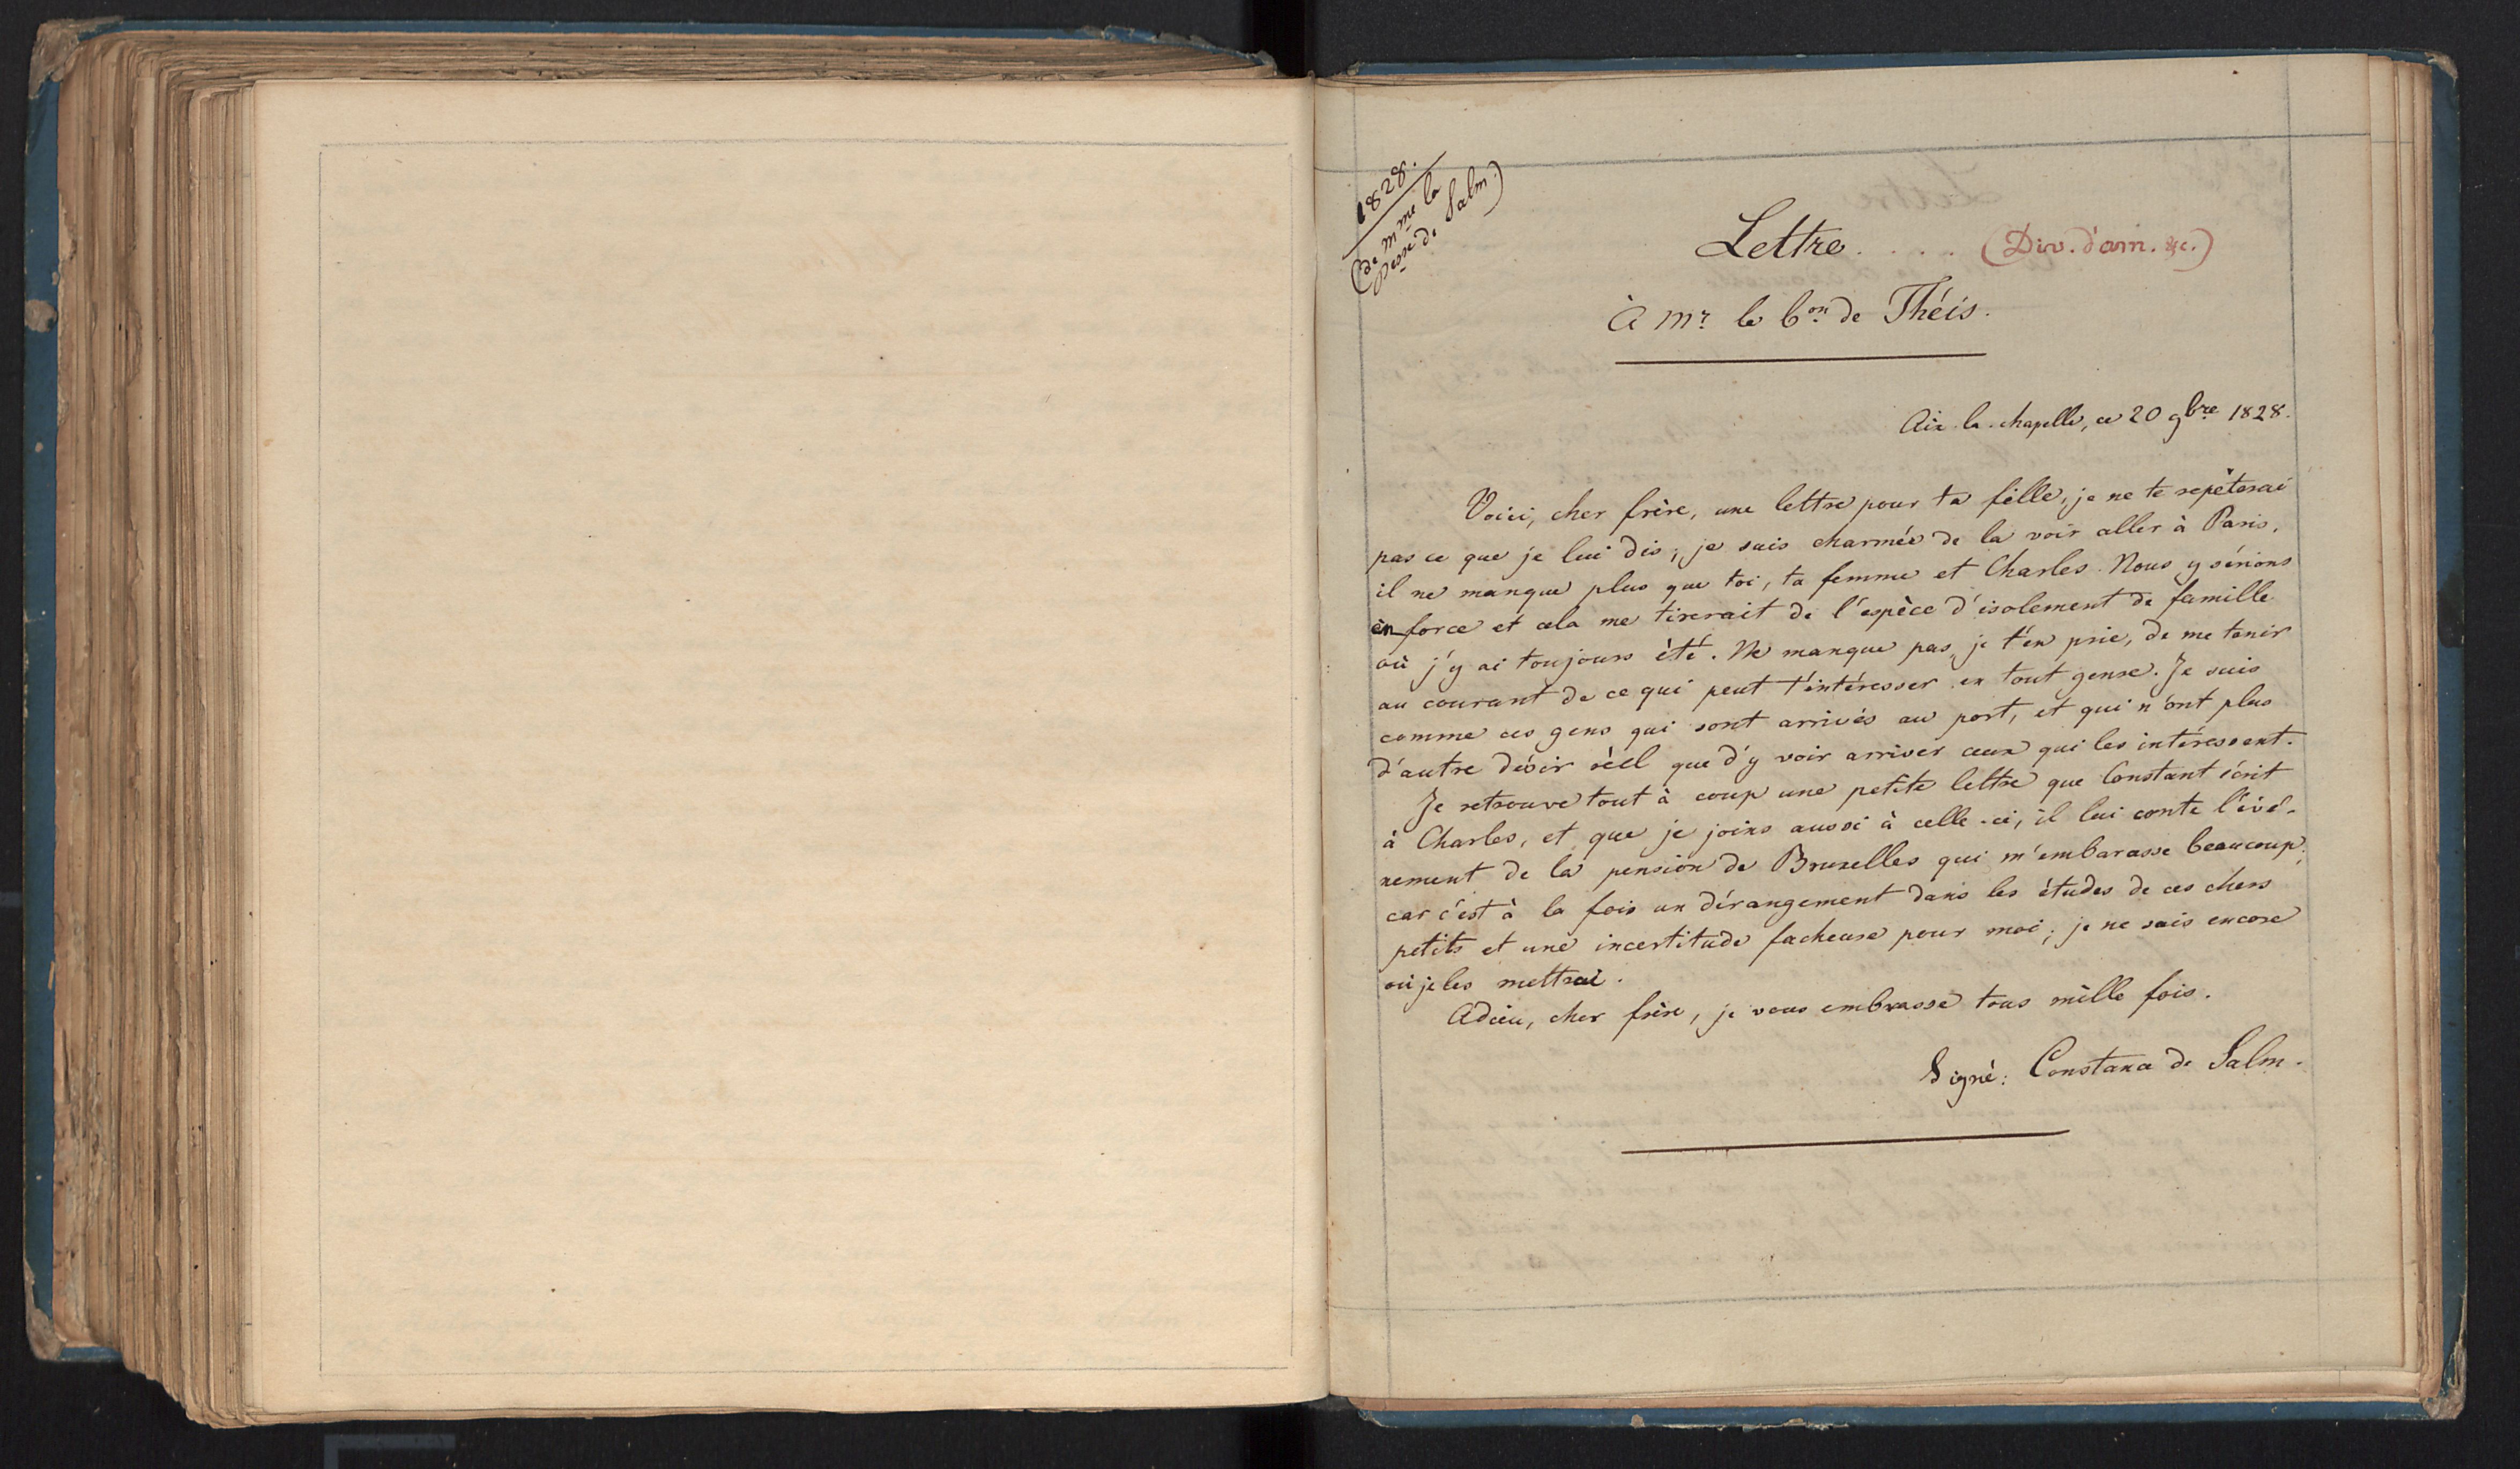 1828.
(de Mme la
Pesse de Salm)
Lettre .... (Div. d'am. &c.)
à Mr. le bon de Théis.
Aix-la-chapelle, ce 20 9bre 1828.
Voici, cher frère, une lettre pour ta fille, je ne te répèterai
pas ce que je lui dis; je suis charmée de la voir aller à Paris.
il ne manque plus que toi, ta femme et Charles. Nous y sérions
en force et cela me tirerait de l'espèce d'isolement de famille
où j'y ai toujours été. Ne manque pas, je t'en prie, de me tenir
au courant de ce qui peut t'intéresser en tout genre. Je suis
comme ces gens qui sont arrivés au port, et qui n'ont plus
d'autre désir réel que d'y voir arriver ceux qui les intéressent.
Je retrouve tout à coup une petite lettre que Constant écrit
à Charles, et que je joins aussi à celle-ci, il lui conte l'évé-
nement de la pension de Bruxelles qui m'embarasse beaucoup;
car c'est à la fois un dérangement dans les études de ces chers
petits et une incertitude facheuse pour moi; je ne sais encore
où je les mettrai.
Adieu, cher frère, je vous embrasse tous mille fois.
Signé: Constance de Salm.